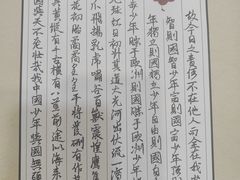 故今日之責任不在他人而全在我
智則國智少年富則國富少年
年獨立則國獨立少年自由則國自
少年勝于歐洲則國勝于歐洲
紅日初升其道大光河出伏流一瀉
爪飛揚乳虎嘯谷百獸震惶鷹
花初胎矞矞皇皇干將發硎有作
其黃縱有千古橫有八荒前途似海來
天不老壯哉我中國少年與國無疆